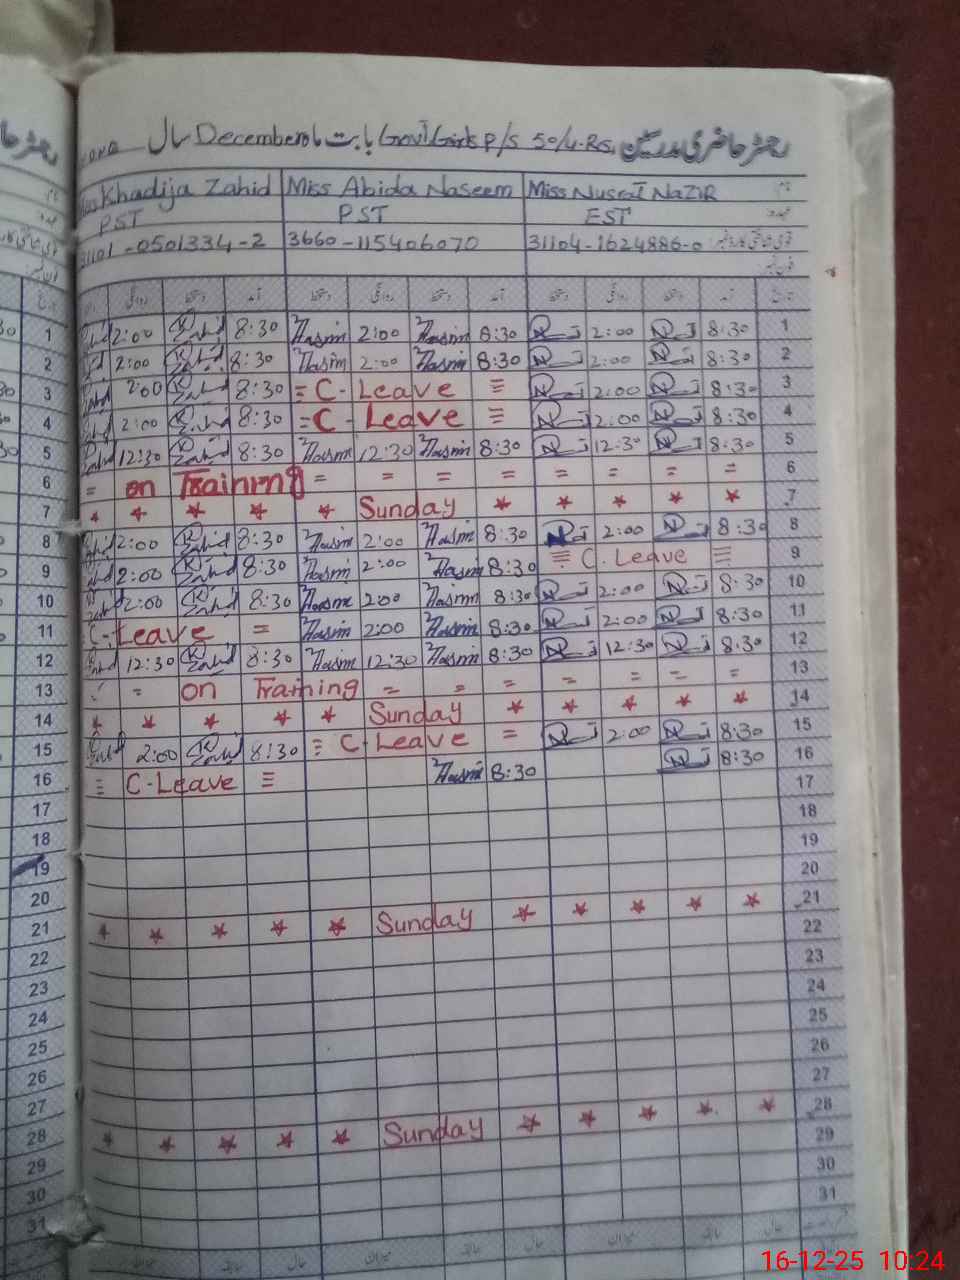 رجسٹر حاضری مدرسین Govt Girls P/S 50/4-RS بابت ماہ December سال
Khadija Zahid Miss Abida Naseem Miss Nusrat NaZIR نام
PST PST EST عہدہ
31101-0501334-2 3660-115406070 31104-1624886-0
تاریخ آمد دستخط روانگی دستخط آمد دستخط روانگی دستخط آمد دستخط روانگی تاریخ
1 2:00 Zahid 8:30 Nasim 2:00 Nasim 8:30 2:00 8:30 1
2 2:00 Zahid 8:30 Nasim 2:00 Nasim 8:30 2:00 8:30 2
3 2:00 Zahid 8:30 = C-Leave ≡ 2:00 8:30 3
4 2:00 Zahid 8:30 = C-Leave ≡ 2:00 8:30 4
5 12:30 Zahid 8:30 Nasim 12:30 Nasim 8:30 12:30 8:30 5
6 = on Training = = = = = = = = 6
7 * * * * * Sunday * * * * * 7
8 2:00 Zahid 8:30 Nasim 2:00 Nasim 8:30 2:00 8:30 8
9 2:00 Zahid 8:30 Nasim 2:00 Nasim 8:30 ≡ C. Leave ≡ 9
10 2:00 Zahid 8:30 Nasim 2:00 Nasim 8:30 2:00 8:30 10
11 C-Leave = Nasim 2:00 Nasim 8:30 2:00 8:30 11
12 12:30 Zahid 8:30 Nasim 12:30 Nasim 8:30 12:30 8:30 12
13 = on Training = = = = = = = 13
14 * * * * * Sunday * * * * * 14
15 2:00 Zahid 8:30 = C-Leave = 2:00 8:30 15
16 ≡ C-Leave ≡ Nasim 8:30 8:30 16
17 17
18 18
19 19
20 20
21 * * * * * Sunday * * * * * 21
22 22
23 23
24 24
25 25
26 26
27 27
28 * * * * * Sunday * * * * * 28
29 29
30 30
31 31
16-12-25 10:24